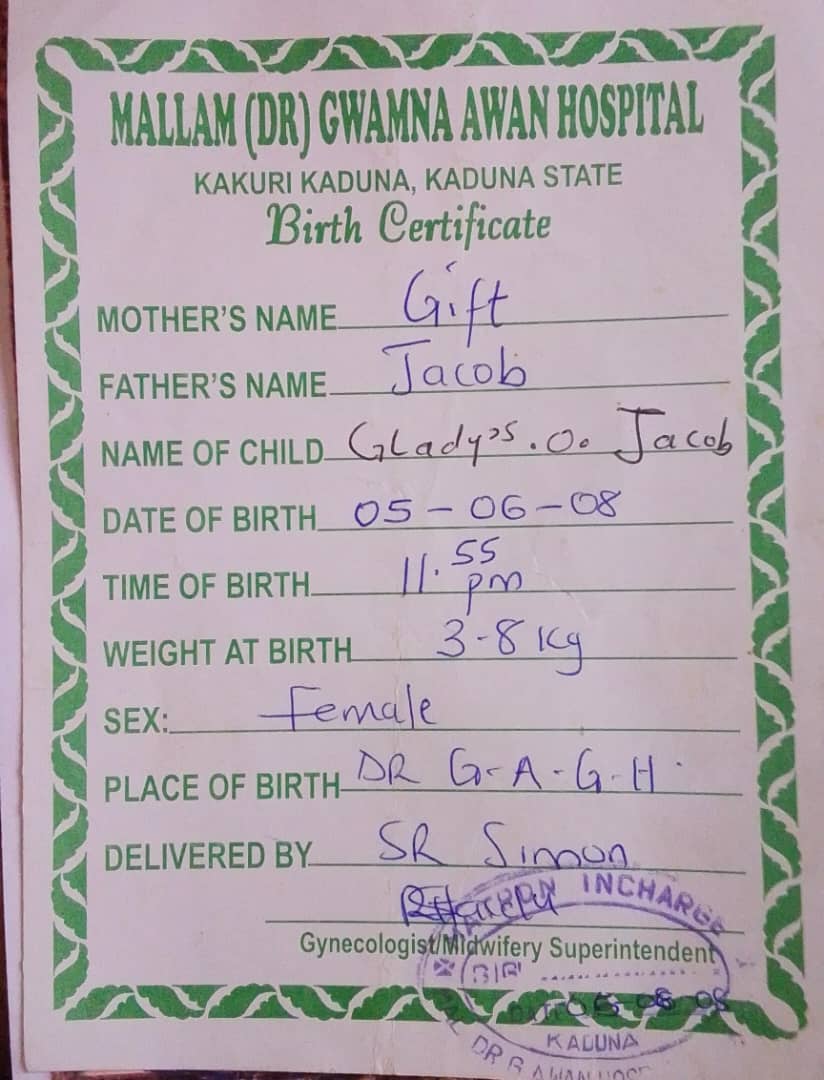 MALLAM (DR) GWAMNA AWAN HOSPITAL
KAKURI KADUNA, KADUNA STATE
Birth Certificate
MOTHER'S NAME Gift
FATHER'S NAME Jacob
NAME OF CHILD GLadys . O. Jacob
DATE OF BIRTH 05 - 06 - 08
TIME OF BIRTH 11.55 pm
WEIGHT AT BIRTH 3-8 kg
SEX: Female
PLACE OF BIRTH DR G-A-G-H.
DELIVERED BY SR Simon
INCHARGE
Gynecologist/Midwifery Superintendent
KADUNA
DR G AWAN